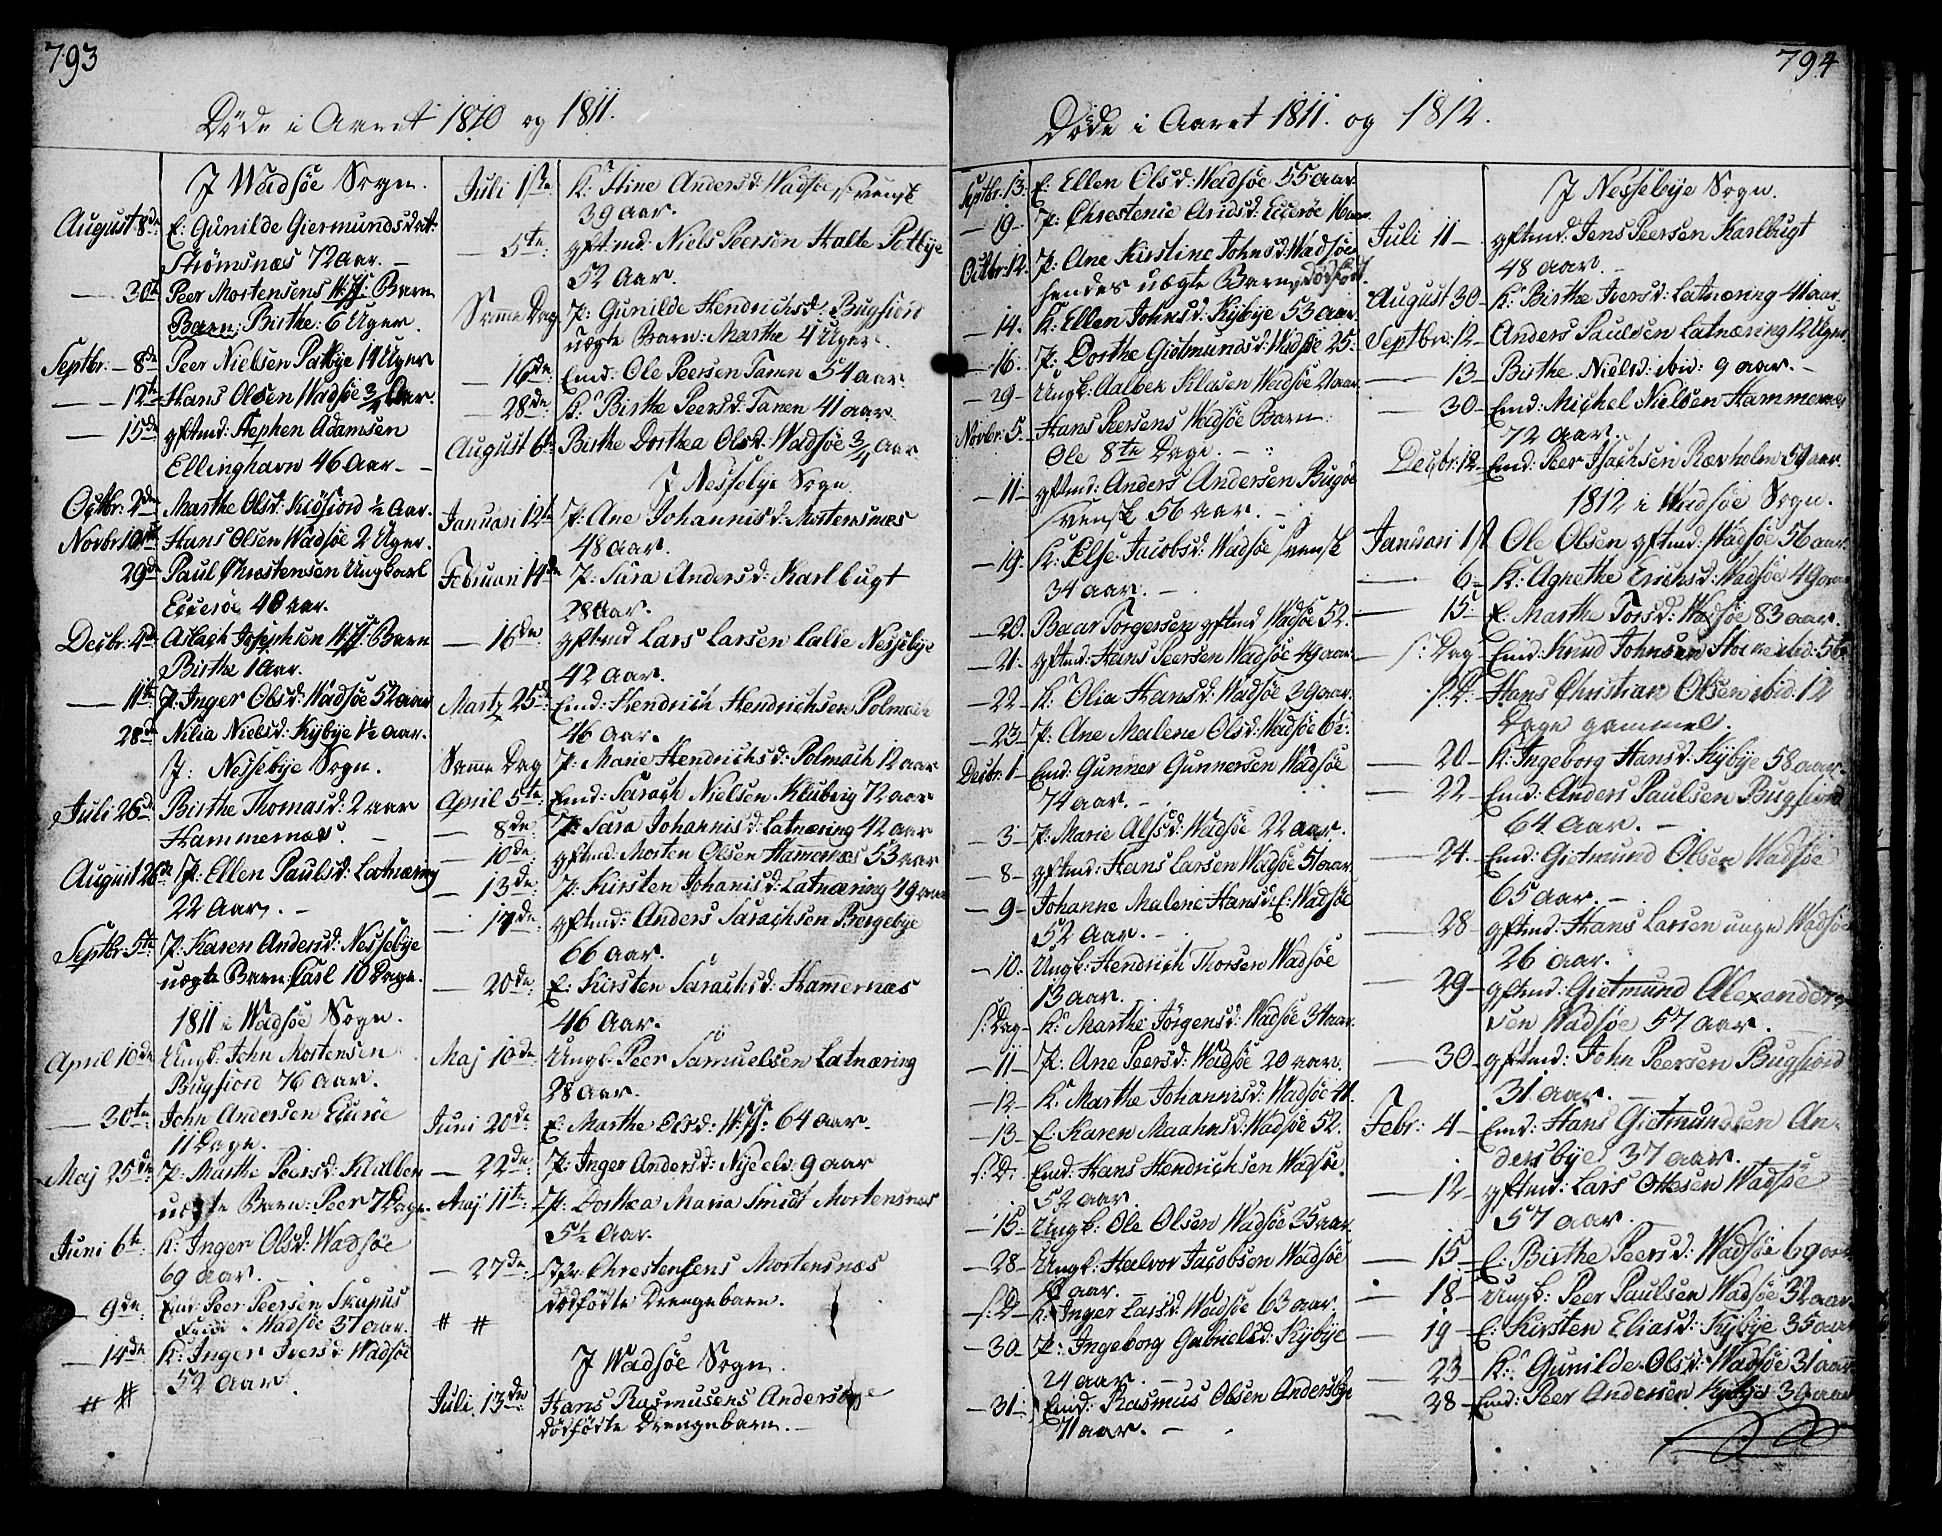 793
Døde i Aaret 1810 og 1811.
J Wadsøe Sogn.
August 8de: E: Gunilde Giermundsdat:
Strømsnæs 72 Aar. –
— 30te Peer Mortensens Barn
Barn: Birthe: 6 Uger.
Septbr: – 8de Peer Nielsen Patbye 14 Uger
— 12te Hans Olsen Wadsøe 3/4 Aar.
— 15de gftmd: Stephen Adamsen
Ellinghavn 46 Aar. –
Octbr: 2den Marthe Olsd: Kløfiord ½ Aar.
Novbr 10de Hans Olsen Wadsøe 2 Uger.
29de Paul Christensen Ungkarl
Eccerøe 40 Aar.
Decbr: 4de Aslach Josephsen Barn
Birthe 1 Aar.
— 11te P: Inger Olsd: Wadsøe 52 aar
28de Nilia Nielsd: Kybye 1½ Aar.
J: Nessebye Sogn.
Juli 26de Birthe Thomasd: 2 aar
Hammernæs. –
August 26de P: Ellen Paulsd: Latnæring
22 Aar. –
Septbr: 5te P: Karen Andersd: Nessebye
uægte Barn: Carl 10 Dage.
1811 i Wadsøe Sogn.
April 10de Ungk: John Mortensen
Bugfiord 76 aar.
— 30te: John Andersen Eccerøe
11 Dage.
Maj 25de P: Marthe Peersd: Klubben
uægte Barn: Peer 7 Dage.
Juni 6te: K: Inger Olsd: Wadsøe
69 aar.
— 9de: Emd: Peer Peersen Skapus
Wadsøe 37 aar.
— 14de K: Inger Iversd: Wadsøe
52 aar.
# #
Juli 1ste K: Stine Andersd: Wadsøe svensk
39 aar.
— 5te: gftmd: Niels Peersen Halte Patbye
52 Aar.
Samme Dag P: Gunilde Hendrichsd: Bugfiord
uægte Barn: Marthe 4 Uger.
— 16de: Emd: Ole Peersen Tanen 54 aar.
— 28de K: Birthe Peersd: Tanen 41 aar.
August 6te Birthe Dorthea Olsd: Wadsøe 3/4 Aar
J Nessebye Sogn
Januari 12te P: Ane Johannisd: Mortensnæs
48 aar.
Februari 14de P: Sara Andersd: Karlbugt
28 Aar.
— 16de: gftmd Lars Larsen Lalle Nessebye
42 aar.
Martz 25de: Emd: Hendrich Hendrichsen Polmach
46 aar.
Samme Dag P: Marie Hendrichsd: Polmach 12 aar
April 5te: Emd: Sarach Nielsen Klubvig 72 aar
— 8de: P: Sara Johannisd: Latnæring 42 aar
— 10de: gftmd: Morten Olsen Hamernæs 53 aar
— 13de: P: Kirsten Johanisd: Latnæring 49 aar
— 17de: gftmd: Anders Sarachsen Bergebye
66 aar.
— 20de: E: Kirsten Sarachsd: Hamernæs
46 Aar.
Maj 10de: Ungk: Peer Samuelsen Latnæring
28 aar.
Juni 20de: E: Marthe Olsd: 64 aar.
— 22de: P: Inger Andersd: Nyeelv 9 aar
Maj 11te: P: Dorthea Maria Smidt Mortensnæs
5½ Aar.
— 27de: Chrestensens Mortensnæs
dødfødte Drengebarn.
# #
J Wadsøe Sogn
Juli 13de Hans Rasmusens Andersbye
dødfødte Drengebarn. –
794
Døde i Aaret 1811. og 1812.
Septbr: 13: E: Ellen Olsd: Wadsøe 55 aar.
— 19. P: Chrestenie Aridsd: Eccerøe 16 aar.
Octbr: 12. P: Ane Kirstine Johnsd: Wadsøe
hendes uægte Barn, dødfødt.
— 14. K: Ellen Johnsd: Kybye 53 aar
— 16. P: Dorthe Gietmundsd: Wadsøe 25.
— 29 – Ungk: Aalbek Klasen Wadsøe 21 aar.
Novbr: 5. Hans Peersens Wadsøe Barn:
Ole 8te Dage. –
— 11 – gftmd: Anders Andersen Bugøe
svensk 56 aar. –
— 19. K: Else Jacobsd: Wadsøe svensk
34 aar. –
— 20. Baar Torgersen gftmd Wadsøe 52.
— 21. gftmd: Hans Peersen Wadsøe 49 aar.
— 22 K: Olia Hansd: Wadsøe 39 aar.
— 23 – P: Ane Malene Olsd: Wadsøe 6½:
Decbr: 1 – Emd: Gunner Gunnersen Wadsøe
74 aar. –
— 3 – P: Marie Alfsd: Wadsøe 22 aar.
— 8 – gftmd: Hans Larsen Wadsøe 51 aar.
— 9 – Johanne Malene Hansd: E: Wadsøe
52 aar. –
— 10. Ungk: Hendrich Thorsen Wadsøe
13 aar.
s: Dag – K: Marthe Jörgensd: Wadsøe 34 aar.
— 11 – P: Ane Peersd: Wadsøe 20 aar.
— 12 – K: Marthe Johannisd: Wadsøe 41.
— 13 – E: Karen Maahnsd: Wadsøe 52.
s: D: Emd: Hans Hendrichsen Wadsøe.
52 aar
— 15. Ungk: Ole Olsen Wadsøe 25 aar.
— 28 – Ungk: Halvor Jacobsen Wadsøe
aar.
s: D – K: Inger Larsd: Wadsøe 63 aar.
— 30 – P: Ingeborg Gabrielsd: Kybye
24 aar. –
— 31: Emd: Rasmus Olsen Andersbye
71 aar. –
J Nessebye Sogn.
Juli 11 – gftmd: Jens Peersen Karlbugt
48 aar. –
August 30 – K: Birthe Iversd: Latnæring 41 aar.
Septbr: 12 – Anders Paulsen Latnæring 12 Uger.
— 13 – Birthe Nielsd: ibid: 9 aar. –
— 30 – Emd: Michel Nielsen Hammernæs
72 aar. –
Decbr: 12 – Emd: Peer Isachsen Rævholm 59 aar.
1812 i Wadsøe Sogn.
Januari 1st Ole Olsen gftmd: Wadsøe 56 aar.
— 6 – K: Agnethe Erichsd: Wadsøe 49 aar
— 15 – E: Marthe Torsd: Wadsøe 83 aar.
— s: Dag – Emd: Knud Johnsen ibid: 56
s: D: – Hans Christian Olsen ibid: 12
Dage gammel.
— 20 – K: Ingeborg Hansd: Kybye 58 aar.
— 22 – Emd: Anders Paulsen Bugfiord
64 aar. –
— 24. – Emd: Gietmund Olsen Wadsøe
65 aar. –
— 28 – gftmd: Hans Larsen unge Wadsøe
26 aar.
— 29 – gftmd: Gietmund Alexander-
sen Wadsøe 57 aar.
— 30 – gftmd: John Peersen Bugfiord
31 aar. –
Febr: 4 – Emd: Hans Gietmundsen An-
dersbye 37 aar.
— 12 – gftmd: Lars Ottesen Wadsøe
57 aar.
— 15 – E: Birthe Peersd: Wadsøe 69 aar
— 18 – Ungk: Peer Paulsen Wadsøe 32 aar
— 19 – E: Kirsten Eliasd: Kybye 35 aar
— 23 – K: Gunilde Olsd: Wadsøe 31 aar
— 28 – Emd: Peer Andersen Kybye 39 aar